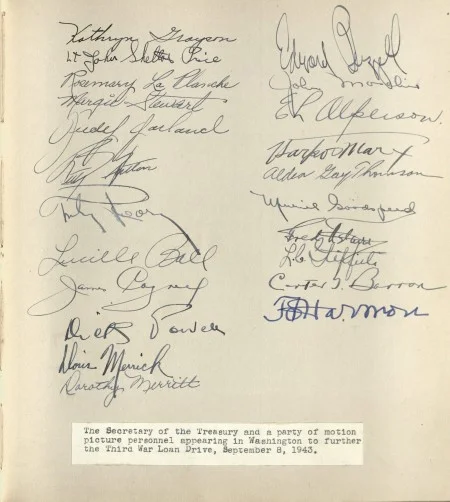 Kathryn Grayson
Lt John Shelton Price
Rosemary La Planche
Margie Stewart
Judy Garland
Betty Hutton
Lucille Ball
James Cagney
Dick Powell
Doris Merrick
Dorothy Merritt
Edward Buzzell
John
E L Alperson.
Harpo Marx
Alden Gay Thomson
Muriel Goodspeed
Fred Astaire
L. C. Griffith
Carter T. Barron
F Harmon
The Secretary of the Treasury and a party of motion
picture personnel appearing in Washington to further
the Third War Loan Drive, September 8, 1943.